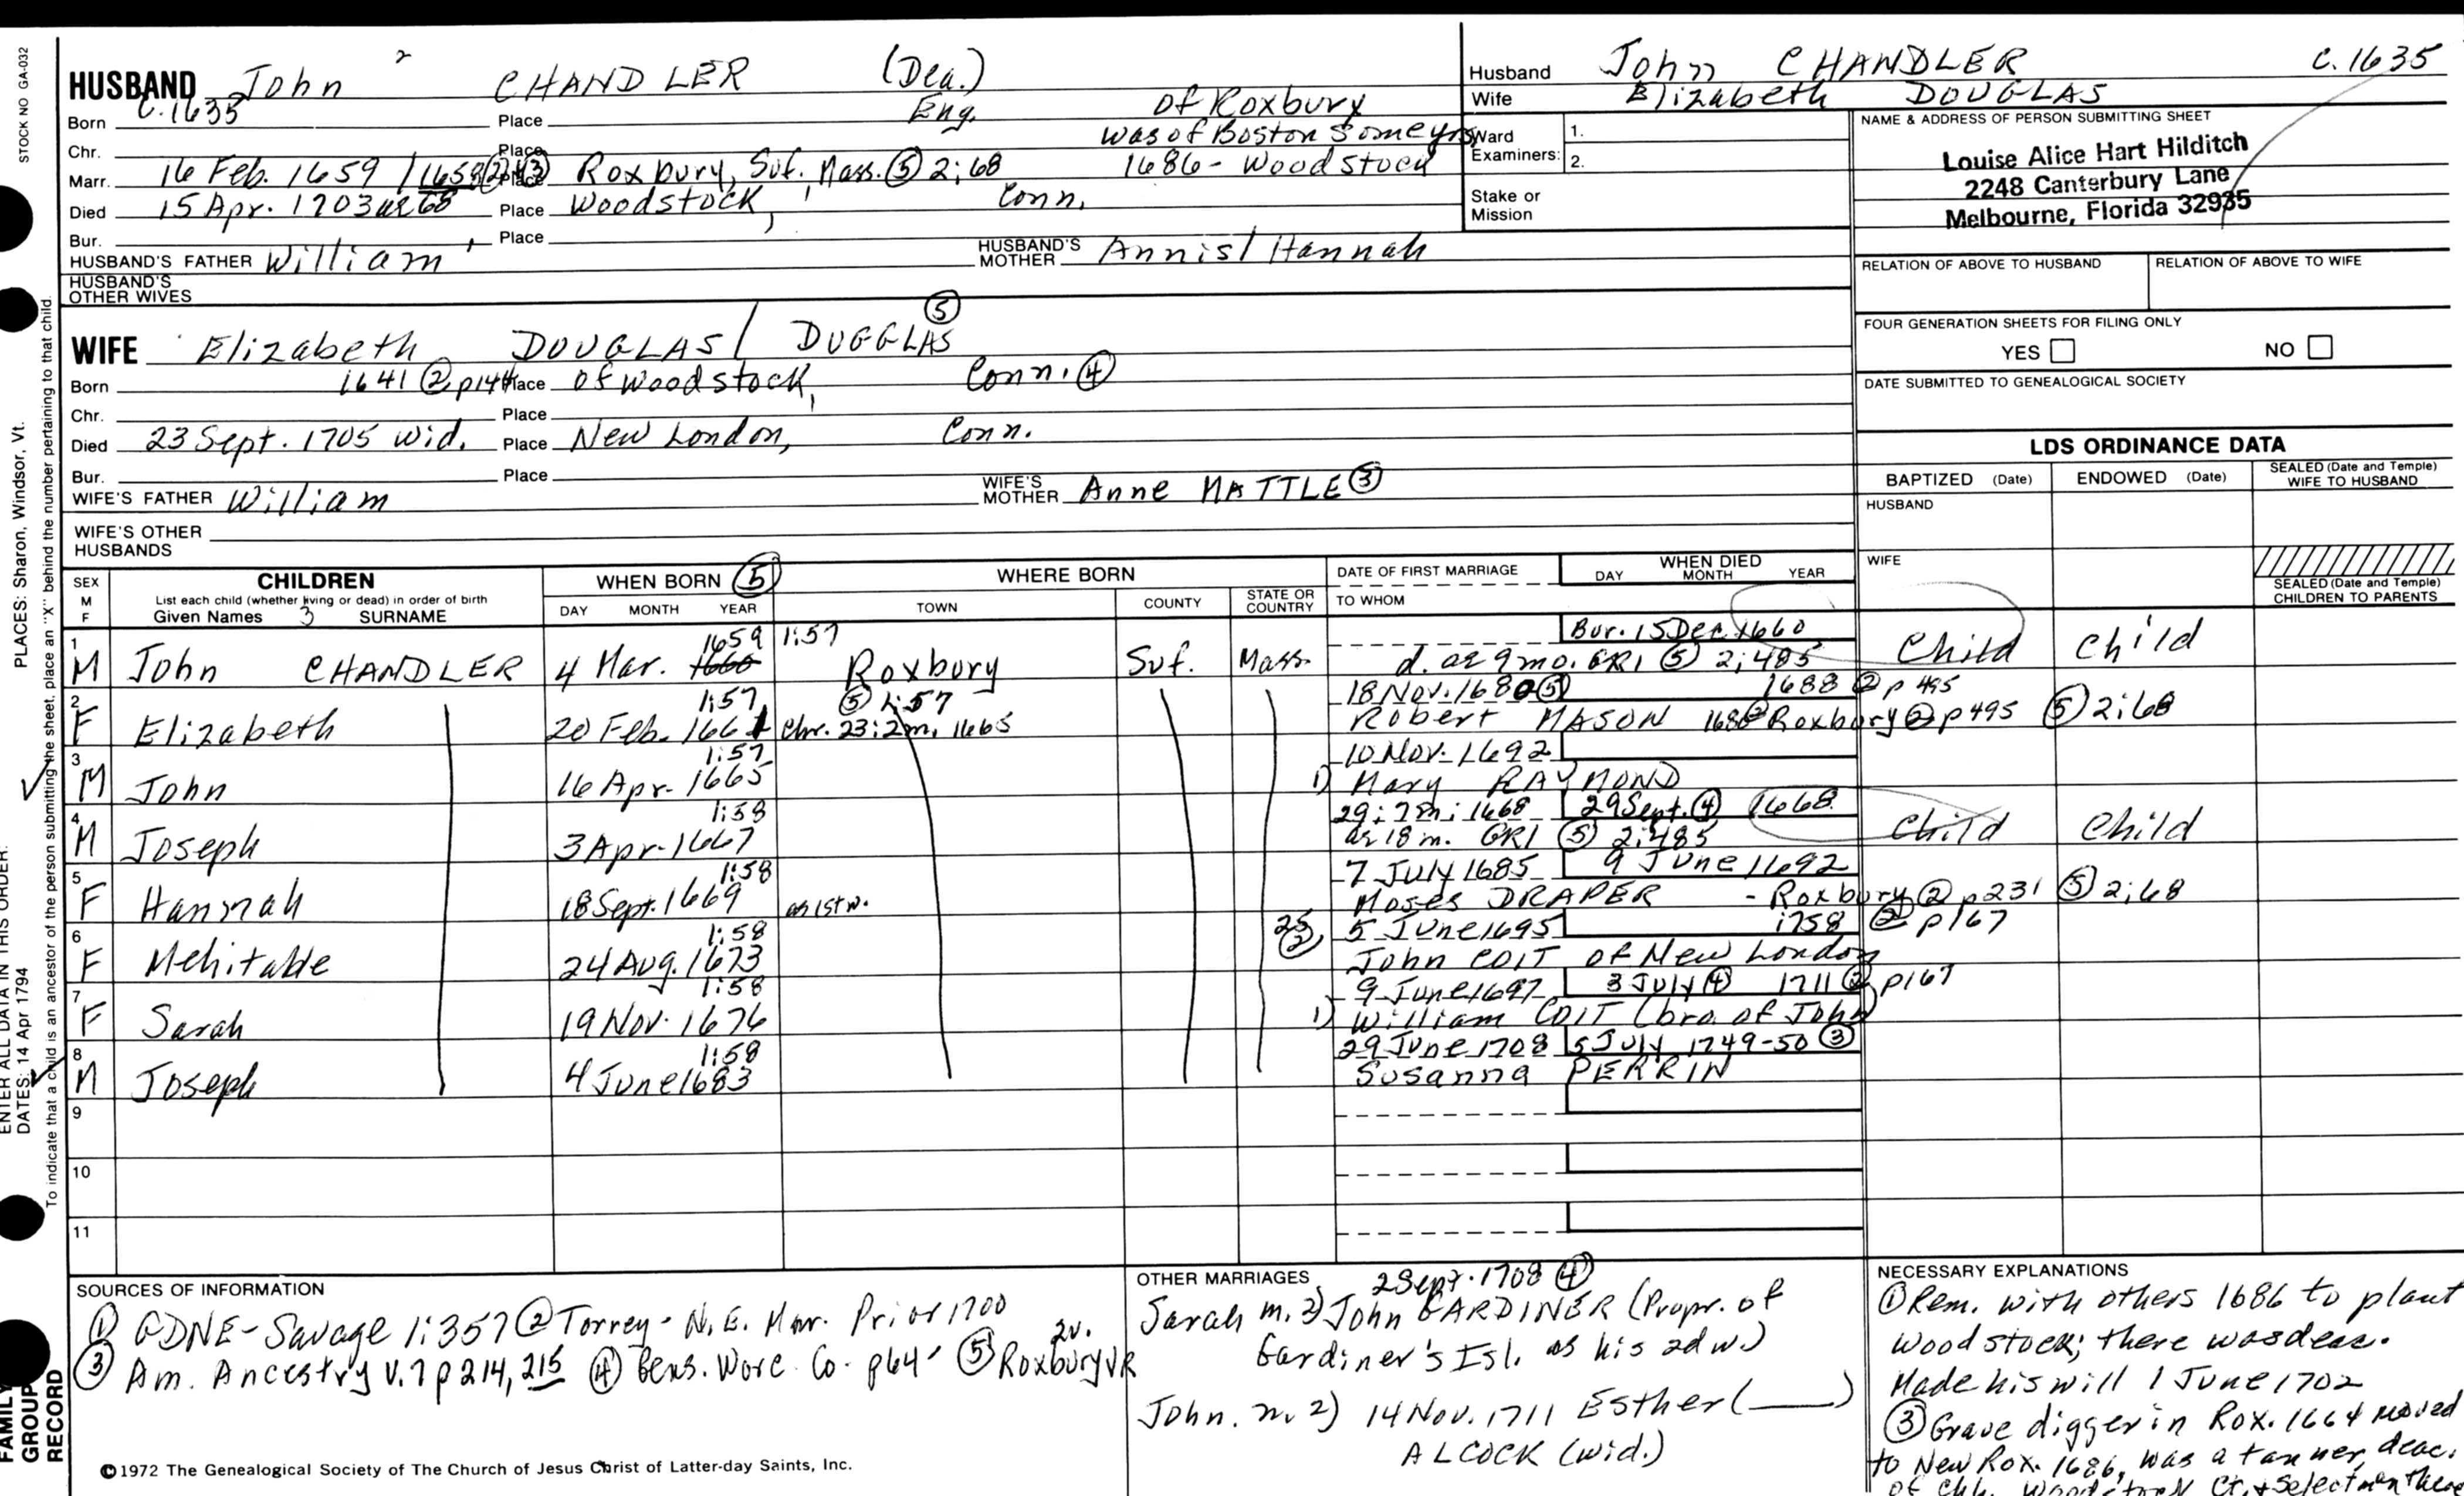 STOCK NO GA-032
PLACES: Sharon, Windsor, Vt.
ENTER ALL DATA IN THIS ORDER:
DATES: 14 Apr 1794
To indicate that a child is an ancestor of the person submitting the sheet, place an "X" behind the number pertaining to that child.
FAMILY GROUP RECORD
HUSBAND John 2 CHANDLER (Dea.)
Born C. 1635 Place Eng. of Roxbury
Chr. Place was of Boston some yrs
Marr. 16 Feb. 1659 / 1658 ② ③ Place Roxbury, Suf. Mass. ⑤ 2:68 1686 - Woodstock
Died 15 Apr. 1703 ae 68 Place Woodstock, Conn.
Bur. Place
HUSBAND'S FATHER William HUSBAND'S MOTHER Annis / Hannah
HUSBAND'S OTHER WIVES
WIFE Elizabeth DOUGLAS / DUGGLAS ⑤
Born 1641 ② p144 Place of Woodstock, Conn. ④
Chr. Place
Died 23 Sept. 1705 wid. Place New London, Conn.
Bur. Place
WIFE'S FATHER William WIFE'S MOTHER Anne MATTLE ③
WIFE'S OTHER HUSBANDS
Husband John CHANDLER C. 1635
Wife Elizabeth DOUGLAS
Ward Examiners: 1.
2.
Stake or Mission
NAME & ADDRESS OF PERSON SUBMITTING SHEET
Louise Alice Hart Hilditch
2248 Canterbury Lane
Melbourne, Florida 32935
RELATION OF ABOVE TO HUSBAND RELATION OF ABOVE TO WIFE
FOUR GENERATION SHEETS FOR FILING ONLY
YES NO
DATE SUBMITTED TO GENEALOGICAL SOCIETY
LDS ORDINANCE DATA
BAPTIZED (Date) ENDOWED (Date) SEALED (Date and Temple) WIFE TO HUSBAND
HUSBAND
WIFE
SEALED (Date and Temple) CHILDREN TO PARENTS
SEX M F CHILDREN WHEN BORN ⑤ WHERE BORN DATE OF FIRST MARRIAGE WHEN DIED
List each child (whether living or dead) in order of birth DAY MONTH YEAR TOWN COUNTY STATE OR COUNTRY TO WHOM DAY MONTH YEAR
Given Names 3 SURNAME
1659 1:57 Bur. 15 Dec. 1660
1 M John CHANDLER 4 Mar. 1660 Roxbury Suf. Mass. d. ae 9 mo. GR1 ⑤ 2:485 Child Child
1:57 ⑤ 1:57 18 Nov. 1680 ⑤ 1688 ② p 495
2 F Elizabeth 20 Feb. 1661 Chr. 23:2m. 1665 Robert MASON Roxbury ② p495 ⑤ 2:68
1:57 10 Nov. 1692
3 M John 16 Apr. 1665 1) Mary RAYMOND
1:58 29:7m:1668 29 Sept. ④ 1668
4 M Joseph 3 Apr. 1667 ae 18 m. GR1 ⑤ 2:485 Child Child
1:58 7 July 1685 9 June 1692
5 F Hannah 18 Sept. 1669 Moses DRAPER - Roxbury ② p231 ⑤ 2:68
1:58 5 June 1695 1758 ② p167
6 F Mehitable 24 Aug. 1673 John COIT of New London
1:58 9 June 1697 3 July ④ 1711 ② p167
7 F Sarah 19 Nov. 1676 1) William COIT (bro. of John)
1:58 29 June 1708 5 July 1749-50 ③
8 M Joseph 4 June 1683 Susanna PERRIN
9
10
11
SOURCES OF INFORMATION
① GDNE - Savage 1:357 ② Torrey - N.E. Mar. Prior 1700
③ Am. Ancestry v. 7 p 214, 215 ④ Gens. Worc. Co. p64 ⑤ Roxbury VR 2v.
©1972 The Genealogical Society of The Church of Jesus Christ of Latter-day Saints, Inc.
OTHER MARRIAGES 2 Sept. 1708 ④
Sarah m. 2) John GARDINER (Propr. of
Gardiner's Isl. as his 2d w.)
John. m. 2) 14 Nov. 1711 Esther (___)
ALCOCK (wid.)
NECESSARY EXPLANATIONS
① Rem. with others 1686 to plant
Woodstock; there was deac.
Made his will 1 June 1702
③ Grave digger in Rox. 1664 moved
to New Rox. 1686, was a tanner, deac.
of Chh. Woodstock Ct. + Selectman there